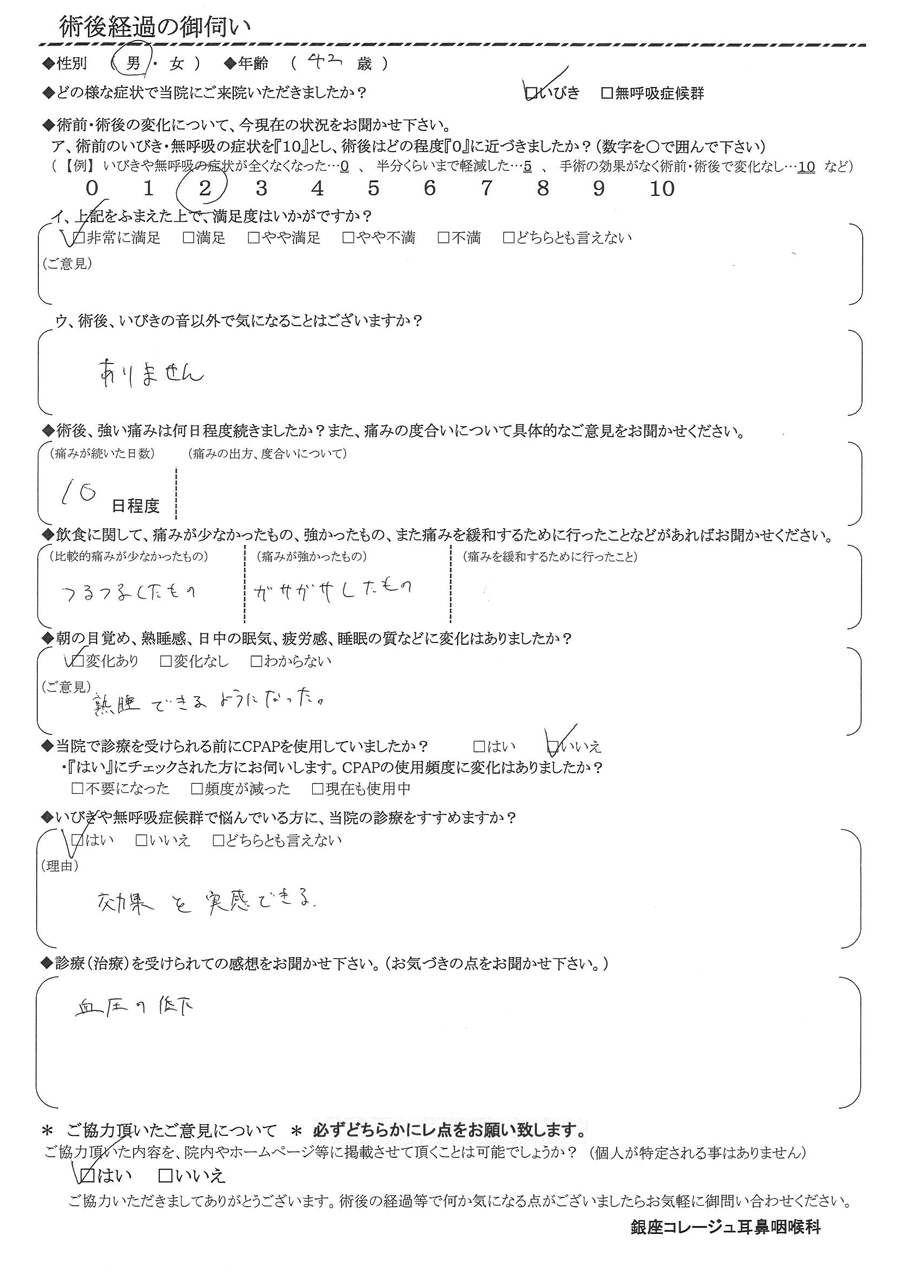 術後経過の御伺い
◆性別　（ 男 ・ 女 ）　◆年齢　（ 42 歳 ）
◆どの様な症状で当院にご来院いただきましたか？　□いびき　□無呼吸症候群
◆術前・術後の変化について、今現在の状況をお聞かせ下さい。
ア、術前のいびき・無呼吸の症状を『10』とし、術後はどの程度『0』に近づきましたか？（数字を〇で囲んで下さい）
（ 【例】 いびきや無呼吸の症状が全くなくなった…0 、 半分くらいまで軽減した…5 、 手術の効果がなく術前・術後で変化なし…10 など）
0 1 2 3 4 5 6 7 8 9 10
イ、上記をふまえた上で、満足度はいかがですか？
□非常に満足　□満足　□やや満足　□やや不満　□不満　□どちらとも言えない
（ご意見）
ウ、術後、いびきの音以外で気になることはございますか？
ありません
◆術後、強い痛みは何日程度続きましたか？また、痛みの度合いについて具体的なご意見をお聞かせください。
（痛みが続いた日数）　（痛みの出方、度合いについて）
10 日程度
◆飲食に関して、痛みが少なかったもの、強かったもの、また痛みを緩和するために行ったことなどがあればお聞かせください。
（比較的痛みが少なかったもの）　（痛みが強かったもの）　（痛みを緩和するために行ったこと）
つるつるしたもの　ガサガサしたもの
◆朝の目覚め、熟睡感、日中の眠気、疲労感、睡眠の質などに変化はありましたか？
□変化あり　□変化なし　□わからない
（ご意見）
熟睡できるようになった。
◆当院で診療を受けられる前にCPAPを使用していましたか？　□はい　□いいえ
・『はい』にチェックされた方にお伺いします。CPAPの使用頻度に変化はありましたか？
□不要になった　□頻度が減った　□現在も使用中
◆いびきや無呼吸症候群で悩んでいる方に、当院の診療をすすめますか？
□はい　□いいえ　□どちらとも言えない
（理由）
効果を実感できる.
◆診療（治療）を受けられての感想をお聞かせ下さい。（お気づきの点をお聞かせ下さい。）
血圧の低下
＊ ご協力頂いたご意見について ＊ 必ずどちらかにレ点をお願い致します。
ご協力頂いた内容を、院内やホームページ等に掲載させて頂くことは可能でしょうか？ （個人が特定される事はありません）
□はい　□いいえ
ご協力いただきましてありがとうございます。術後の経過等で何か気になる点がございましたらお気軽に御問い合わせください。
銀座コレージュ耳鼻咽喉科